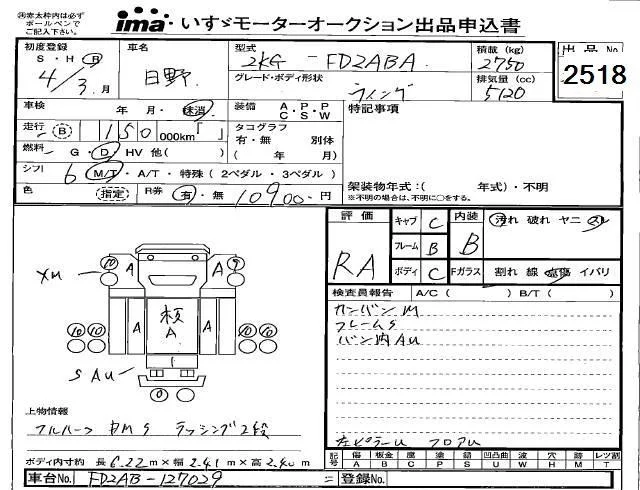 ㊟赤太枠内は必ず
ボールペンで
ご記入下さい。
ima・いすゞモーターオークション出品申込書
初度登録 車名 型式 積載 (kg) 出品No
S・H・R 4/3月 日野 2KG-FD2ABA 2750 2518
グレード・ボディ形状 排気量 (cc)
ウィング 5120
車検 年・月・抹消 装備 A・P・P 特記事項
C S W
走行 B 150 000km「 」 タコグラフ
有・無 別体
燃料 G・D・HV 他( ) ( 年 月)
シフト 6 M/T・A/T・特殊 (2ペダル・3ペダル) 架装物年式:( 年式)・不明
※不明の場合は、不明に○をする。
色 (指定) R券 有・無 10900
評価 キャブ C 内装 汚れ 破れ ヤニ スレ
RA フレーム B B
ボディ C Fガラス 割れ 線 点傷 イバリ
検査員報告 A/C( ) B/T( )
カンバンM
フレームS
バン内AU
左ピラーU フロアU
10 A 9 A
XU
10 10 A 頼 A A 10 10
SAU
0 0
上物情報
フルハーフ ラッシング2段
ボディ内寸約 長6.22m×幅2.41m×高2.40m
記号 傷 板金 腐 塗 錆 凹 凸曲 波 穴 跡 レツ割
A B C P S U W H M T
車台No. FD2AB-127029 = 登録No.